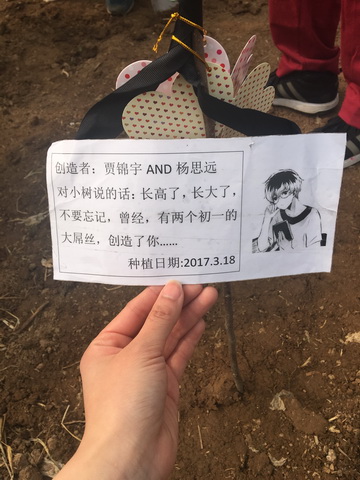 创造者：贾锦宇 AND 杨思远
对小树说的话：长高了，长大了，
不要忘记，曾经，有两个初一的
大屌丝，创造了你……
种植日期:2017.3.18